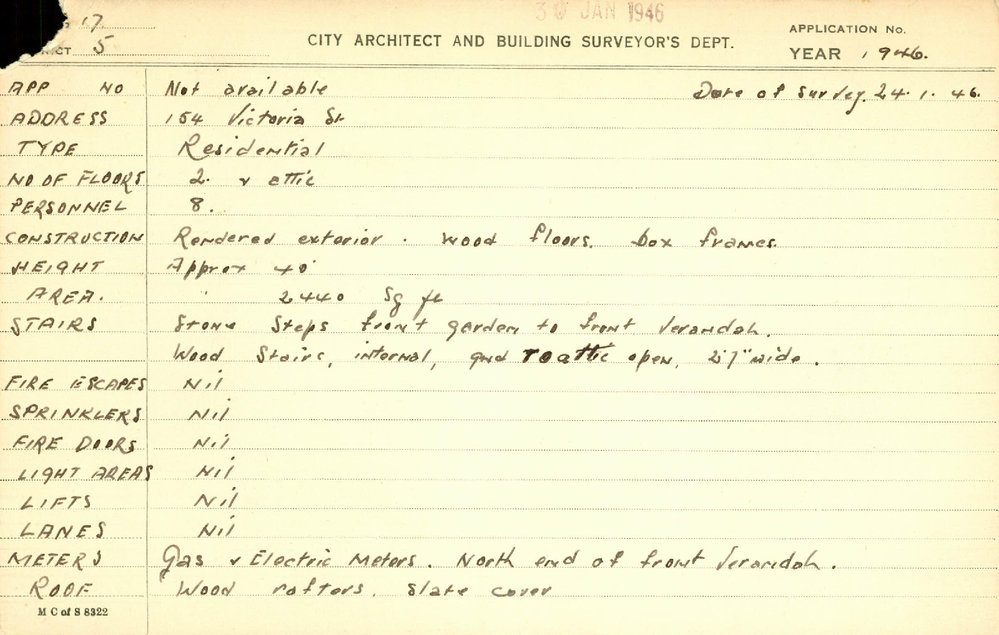 17
30 JAN 1946
5
CITY ARCHITECT AND BUILDING SURVEYOR'S DEPT.
APPLICATION No.
YEAR 1946.
APP NO Not available Date of Survey. 24. 1. 46.
ADDRESS 154 Victoria St
TYPE Residential
NO OF FLOORS 2. & attic
PERSONNEL 8.
CONSTRUCTION Rendered exterior. Wood floors. box frames.
HEIGHT Approx 40'
AREA. " 2440 Sq ft
STAIRS Stone Steps front garden to front Verandah.
Wood Stairs, internal, and TO attic open, 2'7" wide.
FIRE ESCAPES Nil
SPRINKLERS Nil
FIRE DOORS Nil
LIGHT AREAS Nil
LIFTS Nil
LANES Nil
METERS Gas & Electric Meters. North end of front Verandah.
ROOF Wood rafters. Slate cover
M C of S 8322